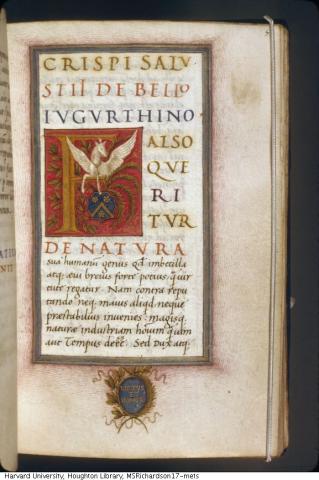 CRISPI SALV
STII DE BELLO
IVGVRTHINO
FALSO
QVE
RI
TVR
DE NATVRA
sua humanū genus qđ imbecilla
atq; aevi brevis forte potius, quā vir
tute regatur. Nam contra repu
tando neq; maius aliqđ, neque
præstabilius invenies: magisq;
naturæ industriam hominū quàm
aut Tempus deēē. Sed Dux atq;
Harvard University, Houghton Library, MSRichardson17-mets